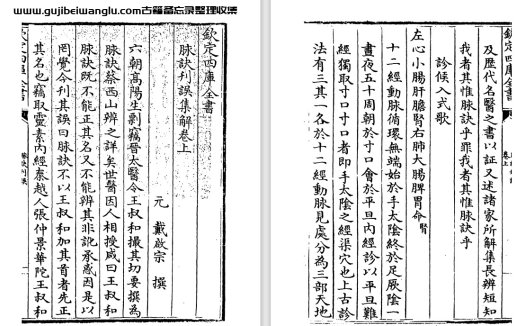 www.gujibeiwanglu.com古籍备忘录整理收集
欽定四庫全書
脉訣刊誤集解卷上
元 戴啟宗 撰
六朝高陽生剽竊晉太醫令王叔和撮其切要撰為
脉訣蔡西山辨之詳矣世醫因人相授咸曰王叔和
脉訣既不能正其名又不能辨其非訛承惑因是以
罔覺今刊其誤曰脉訣不以王叔和加其首者先正
其名也竊取靈素內經秦越人張仲景華陀王叔和
欽定四庫全書
卷上
及歷代名醫之書以証又述諸家所解集長辨短知
我者其惟脉訣乎罪我者其惟脉訣乎
診候入式歌
左心小腸肝膽腎右肺大腸脾胃命腎
十二經動脉循環無端始於手太陰終於足厥陰一
晝夜五十周朝於寸口會於平旦內經診以平旦難
經獨取寸口寸口者即手太陰之經渠穴也上古診
法有三其一各於十二經動脉見處分為三部天地